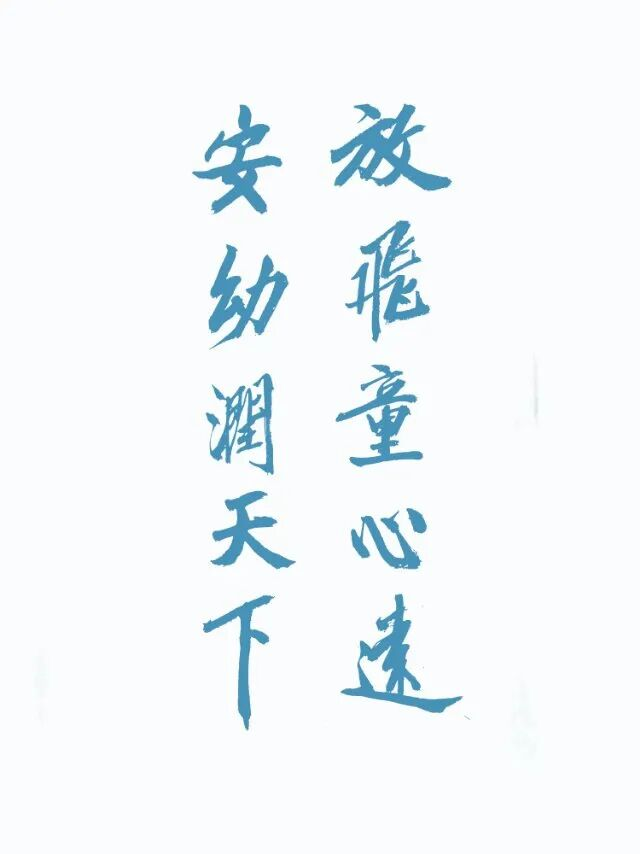 放飛童心遠
安幼潤天下